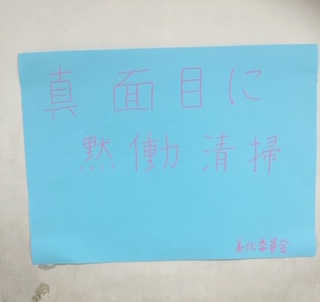 真面目に
黙働清掃
美化委員会